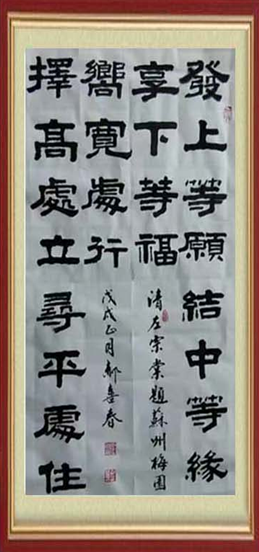 發上等願結中等緣
享下等福
擇高處立尋平處住
嚮寬處行
清左宗棠題蘇州梅園
戊戌正月喜春